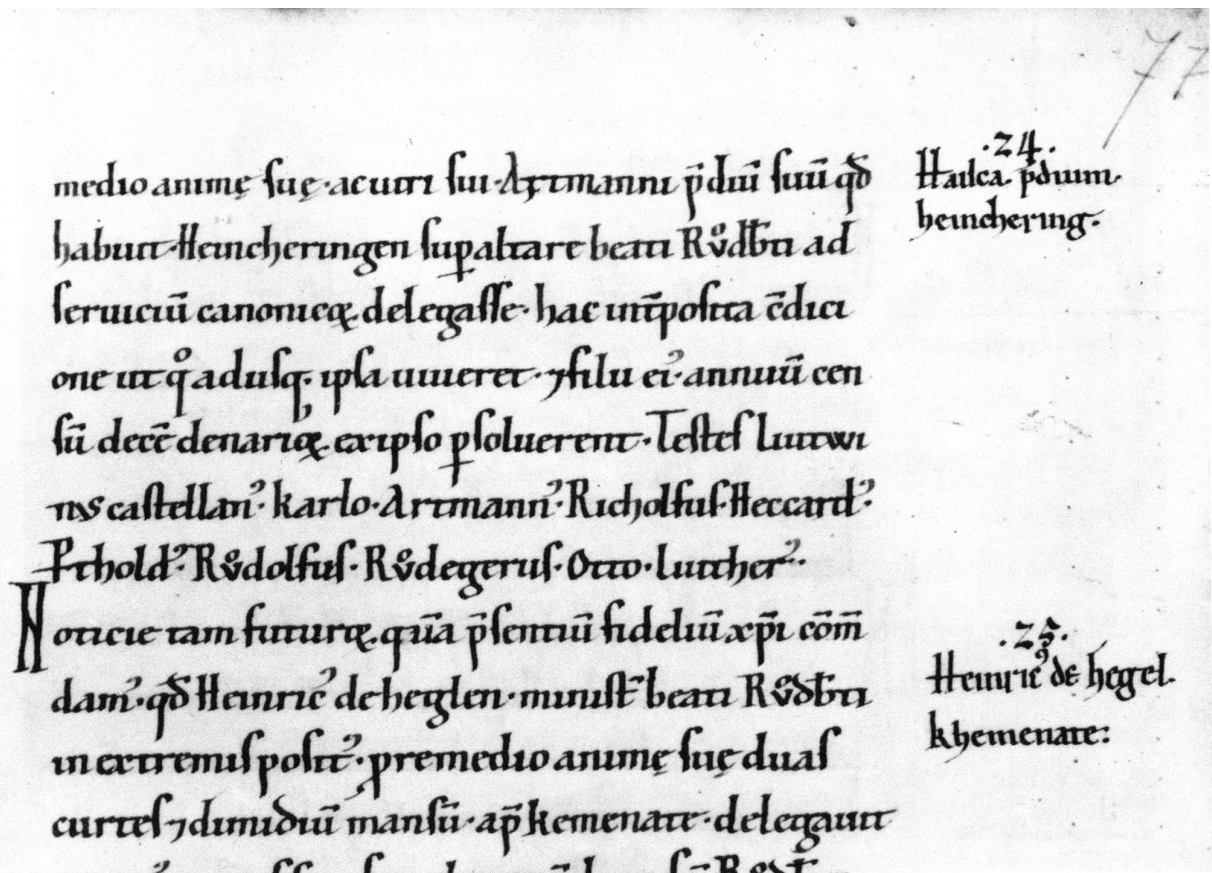 77
medio animę suę · ac uiri sui · Artmanni p̄diū suū qđ
habuit · Heincheringen sup altare beati Růdb̄ti ad
seruiciū canonicoꝝ delegasse · hac int̄posita c̄dici
one ut qͦadusq; ipsa uiueret · ⁊ filii eiꝰ · annuū cen
sū decē denarioꝝ ex ipso ꝑsoluerent · Testes Liutwi
nus castellanꝰ · Karlo · Artmannꝰ · Richolfus · Heccardꝰ ·
P̄tholdꝰ · Růdolfus · Růdegerus · Otto · Liutherꝰ ·
Noticie tam futuroꝝ quā p̄sentiū fideliū xp̄i cōm̄
damꝰ · qđ Heinricꝰ de heglen · minist̄ beati Růdb̄ti
in extremis positꝰ · p remedio animę suę duas
curtes ⁊ dimidiū mansū · ap̄ kemenate · delegauit
· 24 ·
Hailca · p̄dium ·
heinchering ·
· 25 ·
Heinricꝰ de hegel ·
khemenate :